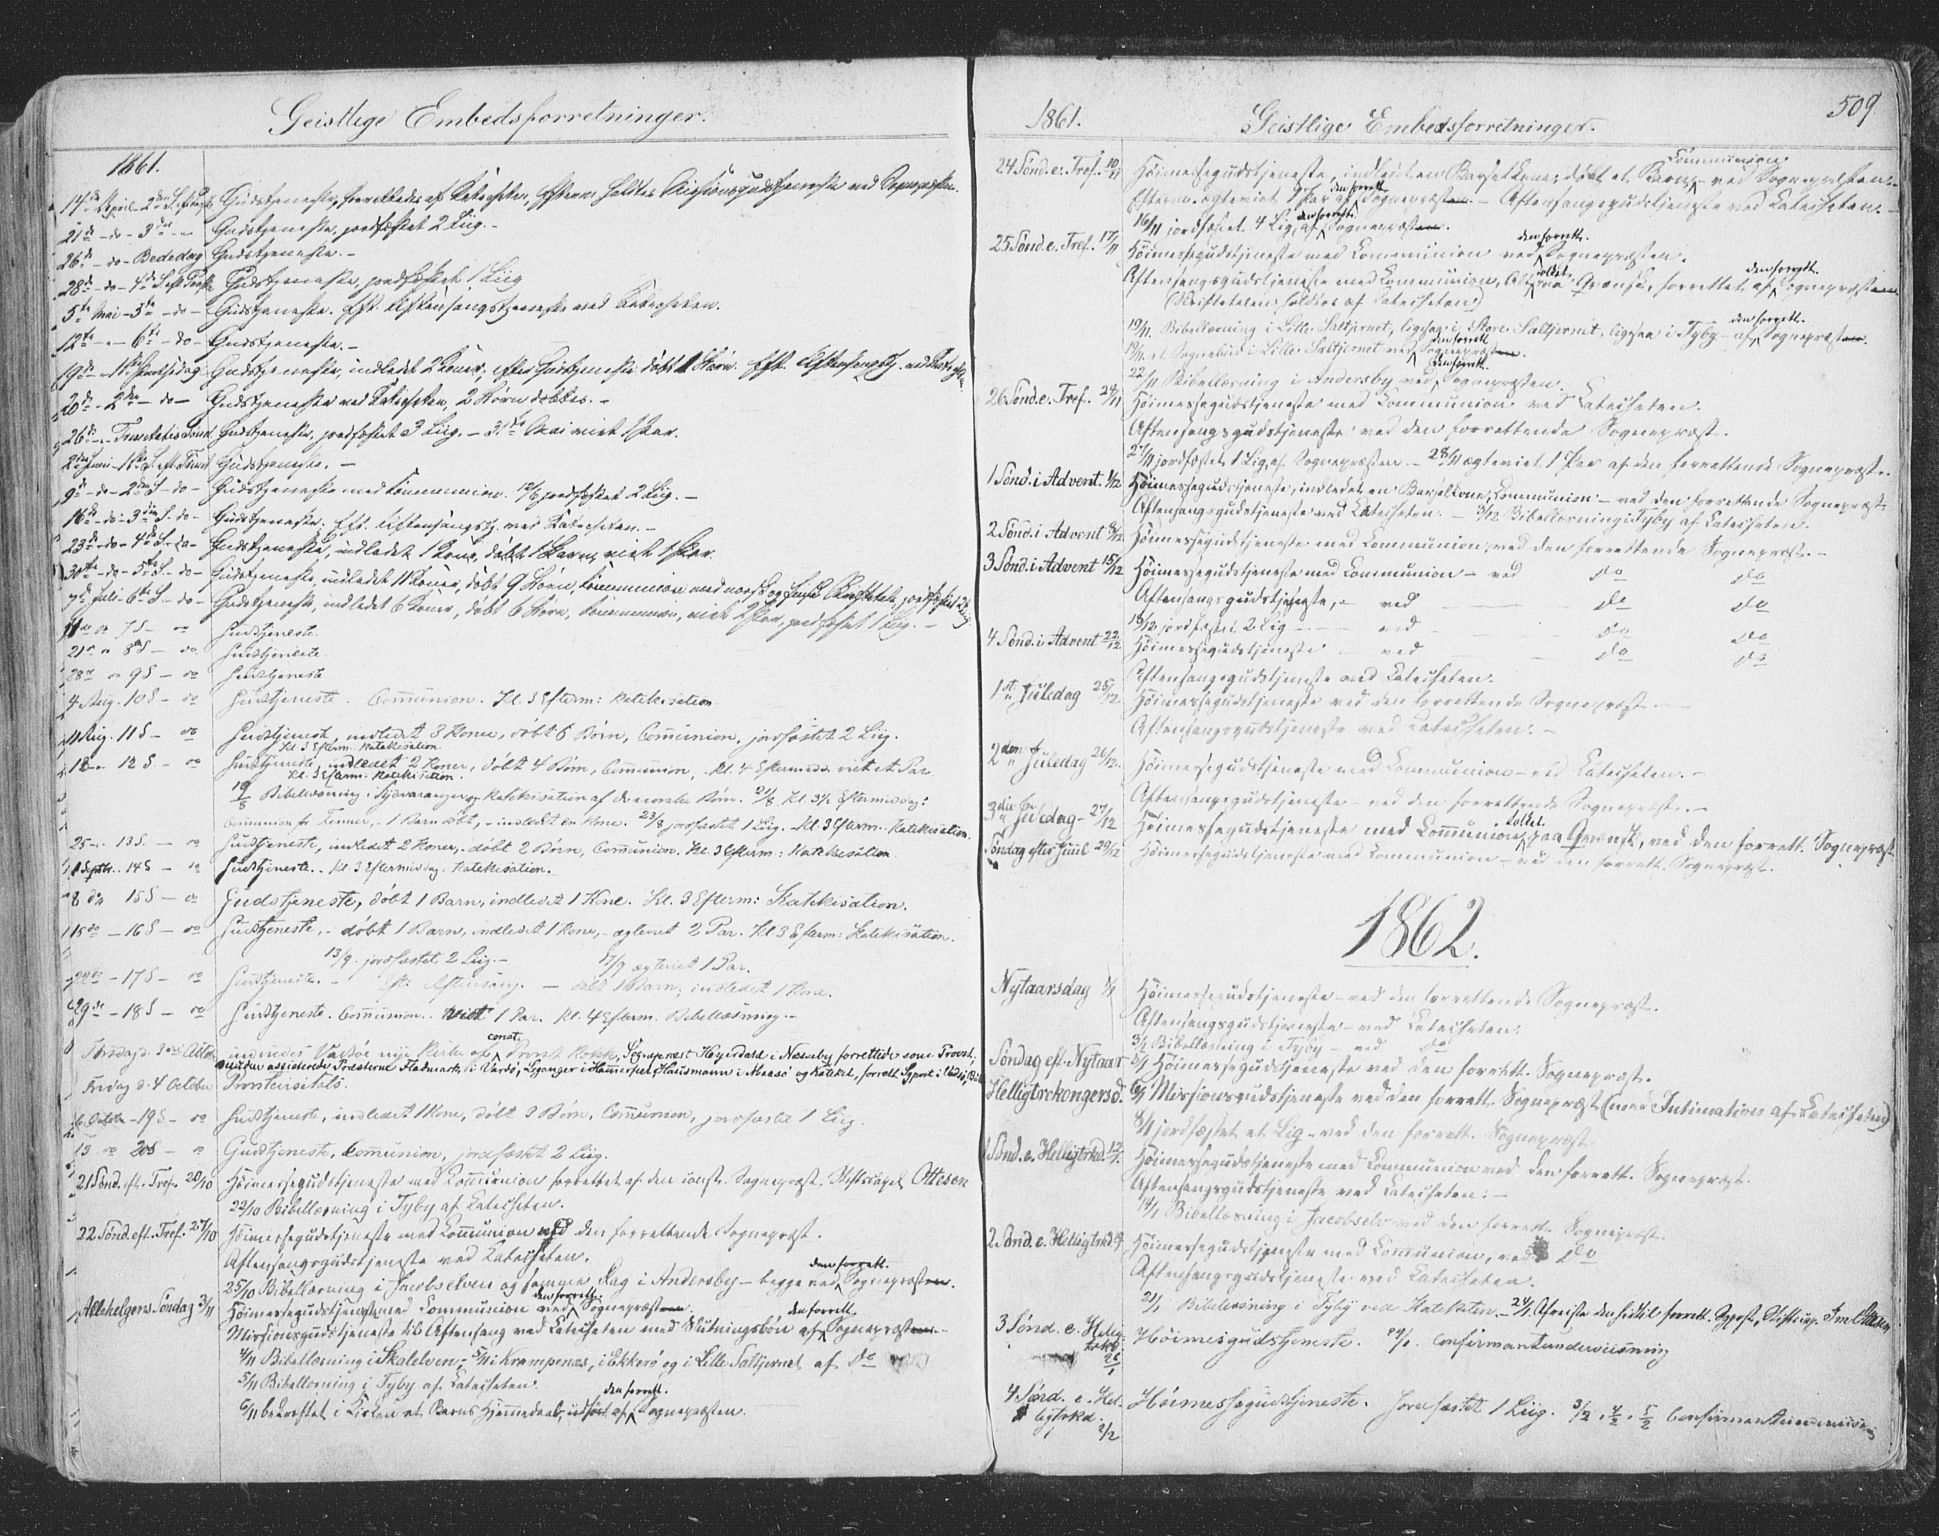 Geistlige Embedsforretninger.
1861.
14de April 2den S. eft. Paaske Gudstjeneste, forrettedes af Katecheten, Efterm. holdtes Missionsgudstjeneste ved Sognepræsten.
21de - do - 3die - - Gudstjeneste, jordfæstet 2 Liig. -
26de - do - Bededag Gudstjeneste. -
28de - do - 4de S. eft. Paaske Gudstjeneste, jordfæstet 1 Liig
5te Mai - 5te - do - Gudstjeneste. Eft. Aftensangstjeneste ved Katecheten.
12te - - 6te - do - Gudstjeneste. -
19de - 1ste Pintsedag Gudstjeneste, indledet 2 Koner, efter Gudstjeneste døbt 1 Børn. Eft. Aftensangstj. ved
20de - 2den - do - Gudstjeneste ved Katecheten, 2 Børn døbtes. -
26de - Trinitatis Sønd. Gudstjeneste, jordfæstet 3 Liig. - 31te Mai viet 1 Par.
2den Juni - 1ste S. eft. Trinit. Gudstjeneste. -
9de - do - 2den S - do - Gudstjeneste med Communion. 12/6 jordfæstet 2 Liig. -
16de - do - 3die S. do - Gudstjeneste. Eft. Aftensangstj. ved Katecheten. -
23de - do - 4de S. - do - Gudstjeneste, indledet 1 Kone, døbt 1 Barn, viet 1 Par.
30te - do - 5te S. - do - Gudstjeneste, indledet 11 Koner, døbt 9 Børn, Communion med norsk og finsk Skriftetale, jordfæstet 2 Liig
7de Juli - 6te S - do - Gudstjeneste, indledet 6 Koner, døbt 6 Børn, Communion, viet 2 Par, jordfæstet 1 Liig. -
14de do 7 S - do Gudstjeneste.
21de do 8de S - do Gudstjeneste
28de do 9 S - do Gudstjeneste
4 Aug. 10 S - do Gudstjeneste. Communion. Kl. 3 Efterm: Katekisation.
11 Aug. 11 S - do Gudstjenest, indledet 3 Koner, døbt 6 Børn, Communion, jordfæstet 2 Liig.
Kl. 3 Efterm. Katekisation.
18 - 12 S - do Gudstjeneste, indledet 2 Koner, døbt 4 Børn, Communion, Kl. 4 Eftermidd. viet et Par
Kl. 3 Efterm: Katekisation.
19/8 Bibellæsning i Sydvaranger og Katekisation af de norske Børn. 21/8 Kl. 3½ Eftermiddag:
Communion for Finner, - 1 Barn døbt, - indledet en Kone. 23/8 jordfæstet 1 Liig. - Kl. 3 Efterm: Katekisation.
25 - 13 S. - do Gudstjeneste, indledet 2 Koner, døbt 2 Børn, Communion. Kl. 3 Efterm: Katekisation
1 Septbr. 14 S - do Gudstjeneste. Kl. 3 Eftermiddag: Katekisation.
8 do 15 S - do Gudstjeneste, døbt 1 Barn, indledet 1 Kone. Kl. 3 Efterm: Katekisation.
15 do - 16 S - do Gudstjeneste, - døbt 1 Barn, indledet 1 Kone, - ægteviet 2 Par. Kl 3 Efterm: Katekisation.
13/9. jordfæstet 2 Liig. - 17/9 ægteviet 1 Par.
22 do - 17 S - do Gudstjeneste. - Eft: Aftensang. - døbt 1 Barn; indledet 1 Kone.
29 de - 18 S - do Gudstjeneste. Communion. viet 1 Par. Kl. 4 Efterm. Bibellæsning. -
const.
Torsdag d. 3die Oktbr indviedes Vadsøe nye Kirke af Provst Kokk, Sognepræst Heyerdahl i Næsseby forrettede som Provst,
under assisterende Præsterne Fladmark i Vardø, i Hammerfest, Hausmann i Maasø og Katket, forrett. Sypst. i Vadsø,
Fredag d. 4 October Provstevisitats.
6 Octbr - 19 S - do Gudstjeneste, indledet 1 Kone, døbt 3 Børn, Communion, jordfæstet 1 Liig.
13 do 20 S - do Gudstjeneste, Communion, jordfæstet 2 Liig.
21 Sønd. eft. Tref. 20/10 Høimessegudstjeneste med Communion forrettet af den const. Sognepræst, Stiftscapel. Ottesen
22/10 Bibellæsning i Tyby af Katecheten.
22 Sønd. eft. Tref. 27/10 Høimessegudstjeneste med Communion ved den forrettende Sognepræst.
Aftensangsgudstjeneste ved Katecheten.
den forrett.
25/10 Bibellæsning i Jacobselven og samme Dag i Andersby - begge ved Sognepræsten.
den forrett.
Allehelgens Søndag 3/11 Høimessegudstjeneste med Communion ved Sognepræsten
den forrett.
Missionsgudstjeneste til Aftensang ved Katecheten med Slutningsbøn af Sognepræsten.
4/11 Bibellæsning i Skalelven; 5/11 i Krampenæs, i Ekkerø og i Lille Saltjernet af do
5/11 Bibellæsning i Tyby af Katecheten.
den forrett.
6/11 bekræftet i Kirken et Barns Hjemmedaab, udført af Sognepræsten.
1861. Geistlige Embedsforretninger. 509
Communion
24 Sønd. e. Tref. 10/11 Høimessegudstjeneste, indledet en Barselkone, døbt et Barn, - ved Sognepræsten. -
den forrett.
Efterm. ægteviet 1 Par af Sognepræsten. - Aftensangsgudstjeneste ved Katecheten. -
den forrett.
16/11 jordfæstet 4 Lig, af Sognepræsten.
den forrett.
25 Sønd. e. Tref. 17/11 Høimessegudstjeneste med Communion ved Sognepræsten.
holdt den forrett.
Aftensangsgudstjeneste med Communion, Qvænsk, forrettet af Sognepræsten
(Skriftetalen holdtes af Katecheten)
den forrett.
19/11 Bibellæsning i Lille Saltjernet, ligesaa i Store Saltjernet, ligesaa i Tyby - af Sognepræsten.
den forrett.
19/11 et Sognebud i Lille Saltjernet ved Sognepræsten.
den forrett.
22/11 Bibellæsning i Andersby ved Sognepræsten.
26 Sønd. e. Tref. 24/11 Høimessegudstjeneste med Communion ved Katecheten.
Aftensangsgudstjeneste ved den forrettende Sognepræst.
27/11 jordfæstet 1 Lig, af Sognepræsten. - 28/11 ægteviet 1 Par af den forrettende Sognepræst.
1 Sønd. i Advent. 1/12 Høimessegudstjeneste, indledet en Barselkone, Communion - ved den forrettende Sognepræst
Aftensangsgudstjeneste ved Katecheten. - 3/12 Bibellæsning i Tyby af Katecheten.
2 Sønd. i Advent 8/12 Høimessegudstjeneste med Communion, ved den forrettende Sognepræst. -
3 Sønd. i Advent 15/12 Høimessegudstjeneste med Communion - ved do do
Aftensangsgudstjeneste, - ved - do do
19/12 jordfæstet 2 Lig - ved - do do
4 Sønd. i Advent 22/12 Høimessegudstjeneste - ved - do do
Aftensangsgudstjeneste ved Katecheten.
1ste Juledag 25/12 Høimessegudstjeneste ved den forrettende Sognepræst. -
Aftensangsgudstjeneste ved Katecheten. -
2den Juledag 26/12 Høimessegudstjeneste med Communion - ved Katecheten. -
Aftensangsgudstjeneste - ved den forrettende Sognepræst. -
holdt
3die Juledag - 27/12 Høimessegudstjeneste med Communion, paa Qvænsk, ved den forrett. Sognepræst
Søndag efter Juul 29/12 Høimessegudstjeneste med Communion - ved den forrett. Sognepræst.
1862.
Nytaarsdag 1/1 Høimessegudstjeneste - ved den forrettende Sognepræst.
Aftensangsgudstjeneste - ved Katecheten.
3/1 Bibellæsning i Tyby - ved do
Søndag eft. Nytaar 5/1 Høimessegudstjeneste ved den forrett. Sognepræst.
Helligtrekongersd. 6/1 Missionsgudstjeneste ved den forrett. Sognepræst (med Intimation af Katecheten)
8/1 jordfæstet et Lig - ved den forrett. Sognepræst
1 Sønd. e. Helligtrkd. 12/1 Høimessegudstjeneste med Communion ved den forrett. Sognepræst.
Aftensangsgudstjeneste ved Katecheten: -
14/1 Bibellæsning i Jacobselv ved den forrett. Sognepræst.
2 Sønd. e. Helligtrkd 19/1 Høimessegudstjeneste med Communion, ved do
Aftensangsgudstjeneste ved Katecheten.
21/1 Bibelæsning i Tyby ved Kateketen. - 24/1 Afreiste den hidtil forrett. Sypst, Stiftscap. Ottesen
3 Sønd. e. Hellig- Høimessgudstjeneste. 29/1. Confirmantundervisning
trkd.
26/1
4 Sønd. e. Hel- Høimessegudstjeneste. Jordfæstet 1 Liig. 3/2, 4/2, 5/2 Confirmantundervisn
ligtrkd.
2/2